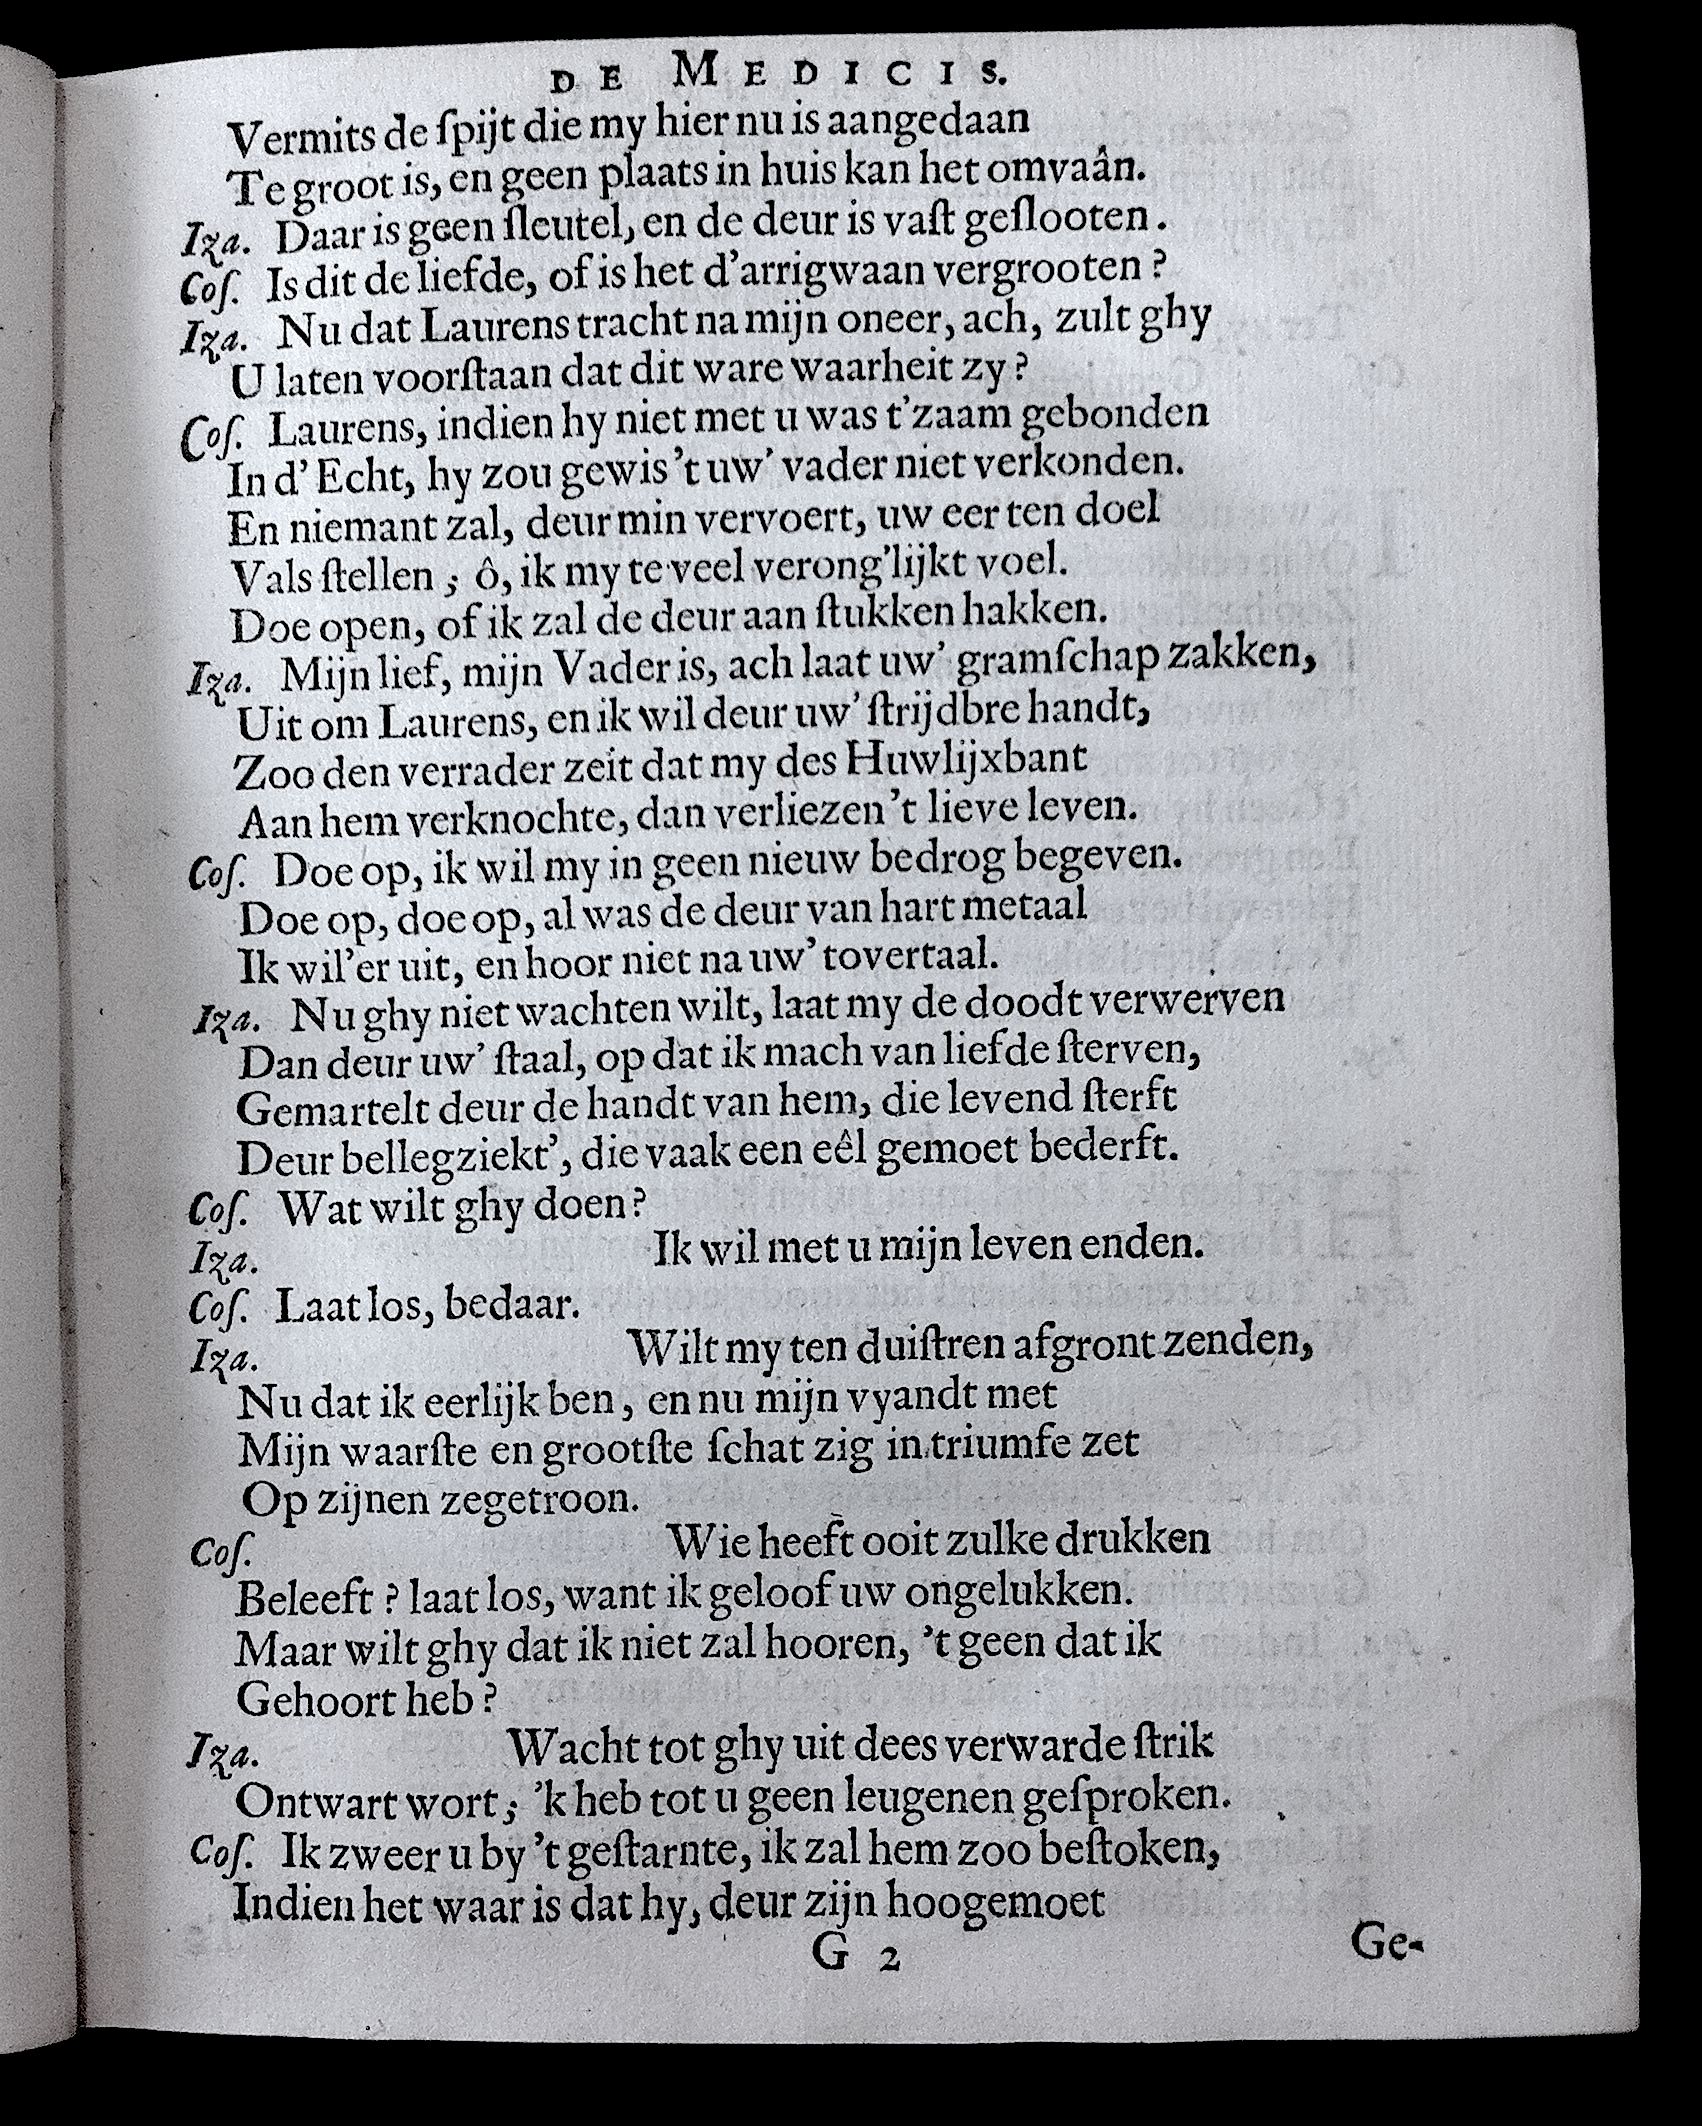 DE MEDICIS.
Vermits de ſpijt die my hier nu is aangedaan
Te groot is, en geen plaats in huis kan het omvaân.
Iza. Daar is geen ſleutel, en de deur is vaſt geſlooten.
Coſ. Is dit de liefde, of is het d'arrigwaan vergrooten?
Iza. Nu dat Laurens tracht na mijn oneer, ach, zult ghy
U laten voorſtaan dat dit ware waarheit zy?
Coſ. Laurens, indien hy niet met u was t'zaam gebonden
In d' Echt, hy zou gewis 't uw' vader niet verkonden.
En niemant zal, deur min vervoert, uw eer ten doel
Vals ſtellen; ô, ik my te veel verong'lijkt voel.
Doe open, of ik zal de deur aan ſtukken hakken.
Iza. Mijn lief, mijn Vader is, ach laat uw' gramſchap zakken,
Uit om Laurens, en ik wil deur uw' ſtrijdbre handt,
Zoo den verrader zeit dat my des Huwlijxbant
Aan hem verknochte, dan verliezen 't lieve leven.
Coſ. Doe op, ik wil my in geen nieuw bedrog begeven.
Doe op, doe op, al was de deur van hart metaal
Ik wil'er uit, en hoor niet na uw' tovertaal.
Iza. Nu ghy niet wachten wilt, laat my de doodt verwerven
Dan deur uw' ſtaal, op dat ik mach van liefde ſterven,
Gemartelt deur de handt van hem, die levend ſterft
Deur bellegziekt', die vaak een eêl gemoet bederft.
Coſ. Wat wilt ghy doen?
Iza. Ik wil met u mijn leven enden.
Coſ. Laat los, bedaar.
Iza. Wilt my ten duiſtren afgront zenden,
Nu dat ik eerlijk ben, en nu mijn vyandt met
Mijn waarſte en grootſte ſchat zig in triumfe zet
Op zijnen zegetroon.
Coſ. Wie heeft ooit zulke drukken
Beleeft? laat los, want ik geloof uw ongelukken.
Maar wilt ghy dat ik niet zal hooren, 't geen dat ik
Gehoort heb?
Iza. Wacht tot ghy uit dees verwarde ſtrik
Ontwart wort; 'k heb tot u geen leugenen geſproken.
Coſ. Ik zweer u by 't geſtarnte, ik zal hem zoo beſtoken,
Indien het waar is dat hy, deur zijn hoogemoet
G 2 Ge-